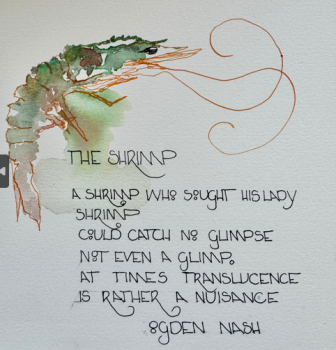 THE SHRIMP
A SHRIMP WHO SOUGHT HIS LADY
SHRIMP
COULD CATCH NO GLIMPSE
NOT EVEN A GLIMP.
AT TIMES TRANSLUCENCE
IS RATHER A NUISANCE
OGDEN NASH